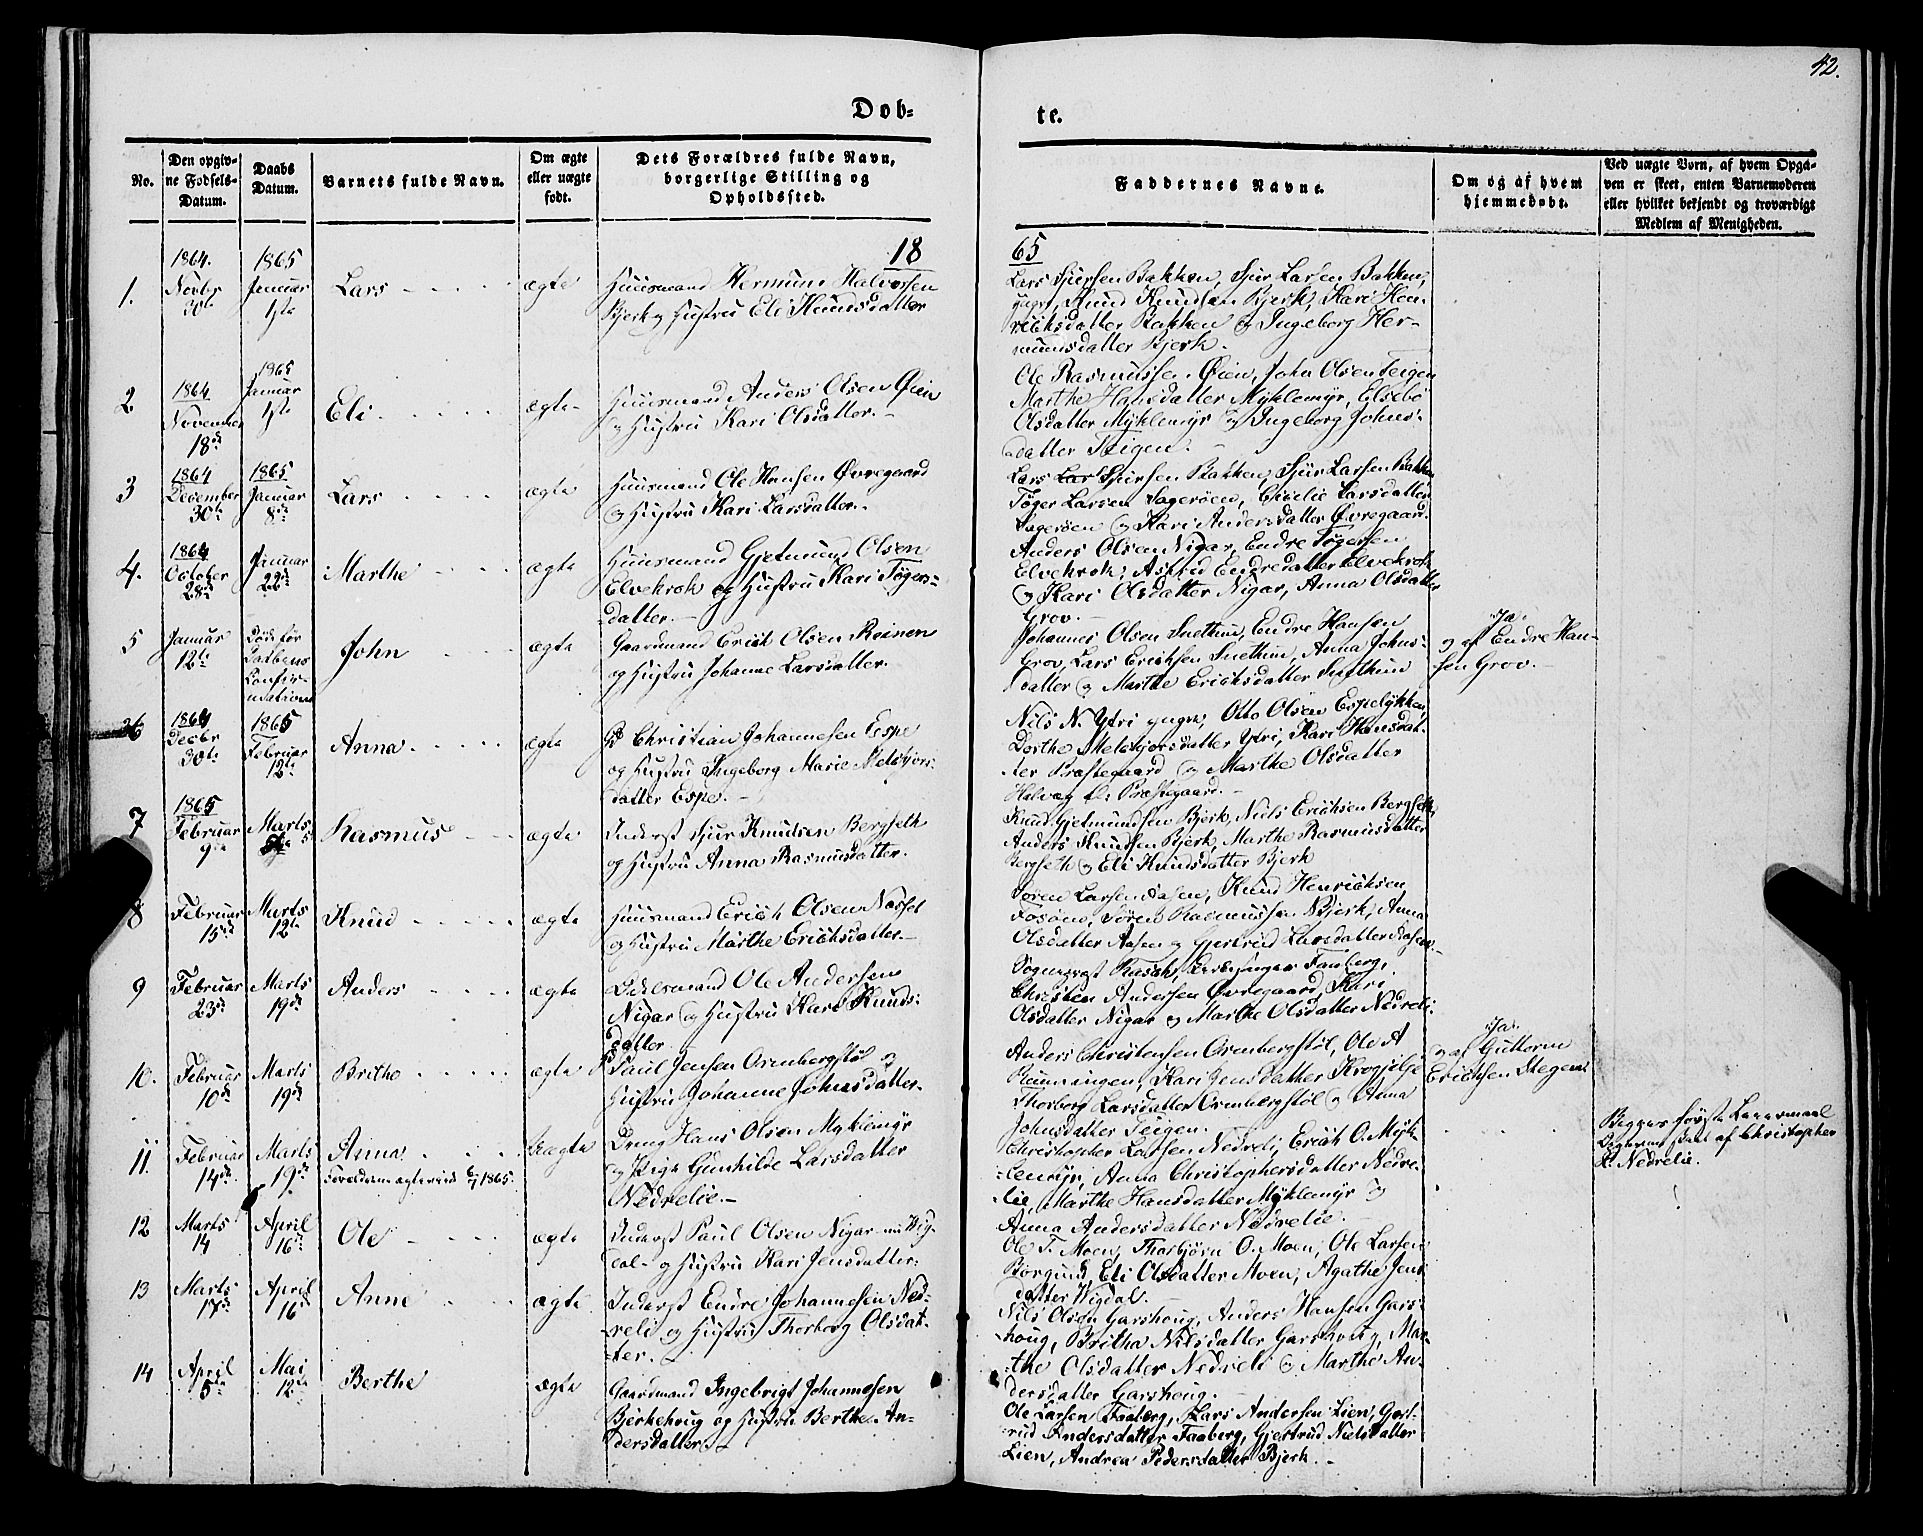 42.
Dobte.
No.
Den opgivne Fødsels-Datum.
Daabs Datum.
Barnets fulde Navn.
Om ægte eller uægte født.
Dets Forældres fulde Navn, borgerlige Stilling og Opholdssted.
Faddernes Navne.
Om og af hvem hjemmedøbt.
Ved uægte Børn, af hvem Opgaven er skeet, enten Barnemoderen eller hvilket bekjendt og troværdigt Medlem af Menigheden.
1865
1.
1864.
Novbr
30te
1865
Januar
1ste
Lars
ægte
Huusmand Hermund Halvorsen
Bjerk og Hustru Eli Knudsdatter
Lars Sjursen Bakken, Sjur Larsen Bakken,
yngre, Knud Knudsen Bjerk, Kari Hen-
richsdatter Bakken og Ingeborg Her-
mundsdatter Bjerk.
2
1864
November
18de
1865
Januar
1ste
Eli
ægte
Huusmand Anders Olsen Øien
og Hustru Kari Olsdatter.
Ole Rasmussen Øien, John Olsen Teigen
Marthe Hansdatter Myklemyr, Elsebø
Olsdatter Myklemyr og Ingeborg Johns-
datter Teigen.
3
1864
December
30te
1865
Januar
8de
Lars
ægte
Huusmand Ole Hansen Øvregaard
og Hustru Kari Larsdatter.
Lars Lar Sjursen Bakken, Sjur Larsen Bakken
Tøger Larsen Sagerøen, Cicelie Larsdatter
Sagerøen og Kari Andersdatter Øvregaard.
4.
1864
October
28de
Januar
22de
Marthe
ægte
Huusmand Gjetmund Olsen
Elvekrok og Hustru Kari Tøgers-
datter.
Anders Olsen Nigar, Endre Tøgersen
Elvekrok, Astrid Endredatter Elvekrok
og Kari Olsdatter Nigar, Anna Olsdatter
Grov.
5
Januar
12te
Døde før
Daabens
Confir-
mation
John
ægte
Gaardmand Erich Olsen Reinen
og Hustru Johanne Larsdatter.
Johannes Olsen Snethun, Endre Hansen
Grov, Lars Erichsen Snethun, Anna Johns-
datter og Marthe Erichsdatter Snethun
Ja,
og af Endre Han-
sen Grov.
6
1864
Decbr
30te
1865
Februar
12te
Anna
ægte
Christian Johannesen Espe
og Hustru Ingeborg Marie Melchjors-
datter Espe.
Nils N. Ytri yngre, Otto Olsen Espelykken
Dorthe Melchjorsdatter Ytri, Kari Hansdat-
ter Præstegaard og Marthe Olsdatter
Præstegaard.
7
1865
Februar
9de
Marts
5
Rasmus
ægte
Inderst Sjur Knudsen Bergseth
og Hustru Anna Rasmusdatter.
Knud Gjetmundsen Bjerk, Niels Erichsen Bergseth,
Anders Knudsen Bjerk, Marthe Rasmusdatter
Bergseth og Eli Knudsdatter Bjerk
8
Februar
15de
Marts
12te
Knud
ægte
Huusmand Erich Olsen Nasset
og Hustru Marthe Erichsdatter.
Søren Larsen Aasen, Knud Henrichsen
Fosøen, Søren Rasmussen Bjerk, Anna
Olsdatter Aasen og Gjertrud Larsdatter Aasen.
9
Februar
23de
Marts
19de
Anders
ægte
Ole Andersen
Nigar og Hustru Kari Knuds-
datter
Sogneprest Rasch, Kirkesanger Faaberg,
Christen Andersen Øvregaard, Kari
Olsdatter Nigar og Marthe Olsdatter Nedreli.
10.
Februar
10de
Marts
19de
Brithe
ægte
Paul Jensen Ormbergstøl og
Hustru Johanne Johnsdatter.
Anders Christensen Ormbergstøl, Ole A
Rønningen, Kari Jensdatter Krogfølge
Thorborg Larsdatter Ormbergstøl og Anna
Johnsdatter Teigen.
Ja.
og af Guttorm
Erichsen Stegene
11.
Februar
14de
Marts
19de
Anna
Forældrene ægteviet 6/7 1865.
uægte
Dreng Hans Olsen Myklemyr
og Pige Gunhilde Larsdatter
Nedrelie.
Christopher Larsen Nedreli, Erich O. Myk-
lemyr, Anna Christophersdatter Nedre-
lie, Marthe Hansdatter Myklemyr og
Anna Andersdatter Nedrelie.
Begges første Leiermaal
Opgaven skeet af Christopher
L. Nedrelie.
12
Marts
14
April
16de
Ole
ægte
Inderst Paul Olsen Nigar nu Vig-
dal og Hustru Kari Jensdatter.
Ole T. Moen, Thorbjørn O. Moen, Ole Larsen
Borgund, Eli Olsdatter Moen, Agathe Jens
datter Wigdal.
13
Marts
17de
April
16de
Anne
ægte
Inderst Endre Johannesen Ned-
reli og Hustru Thorborg Olsdat-
ter.
Nils Olsen Garshoug, Anders Hansen Gars-
houg, Britha Nilsdatter Garshoug, Mar-
the Olsdatter Nedreli og Marthe An-
dersdatter Garshoug.
14
April
5te
Mai
12te
Berthe
ægte
Gaardmand Ingebrigt Johannesen
Bjerkehoug og Hustru Berthe An-
dersdatter.
Ole Larsen Faaberg, Lars Andersen Lien, Gjert-
rud Andersdatter Faaberg, Gjertrud Nielsdatter
Lien, Andrea Pedersdatter Bjerk.